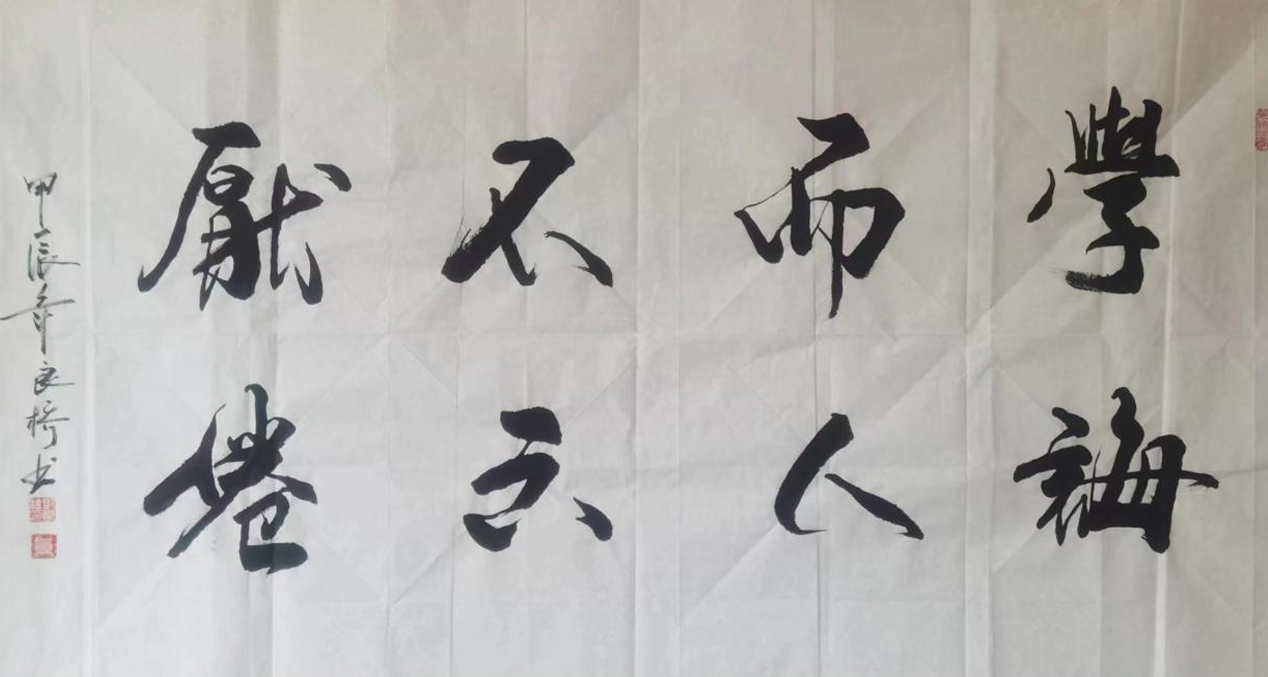 學而不厭
誨人不倦
甲辰年良书